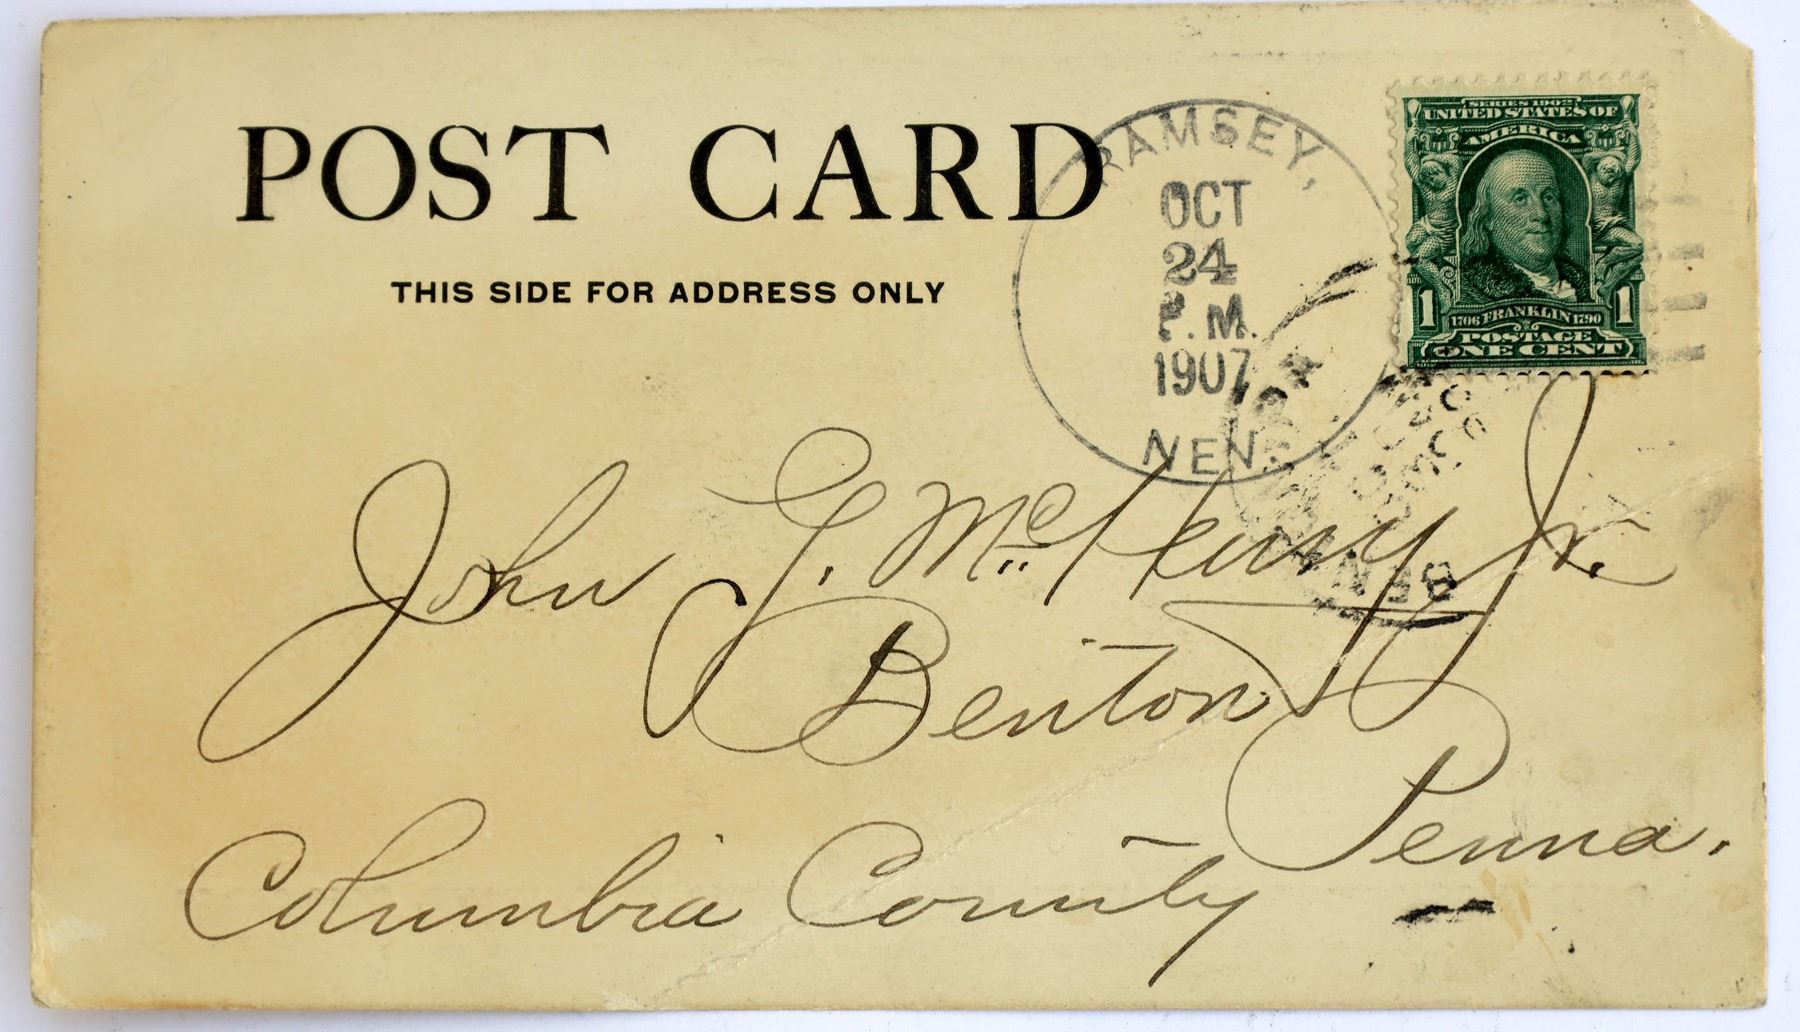 POST CARD
THIS SIDE FOR ADDRESS ONLY
RAMSEY,
OCT
24
P.M.
1907
NEV.
SERIES 1902
UNITED STATES OF
AMERICA
1 1
1706 FRANKLIN 1790
POSTAGE
ONE CENT
John G. McHenry Jr.
Benton
Penna.
Columbia County